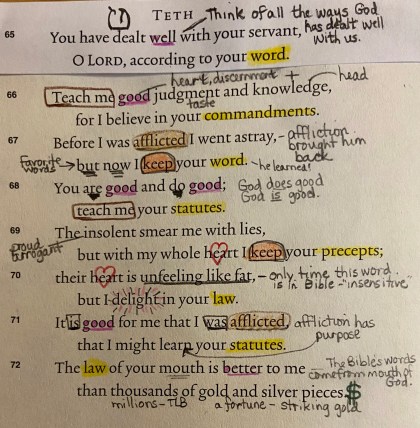 TETH Think of all the ways God
has dealt well
with us.
65 You have dealt well with your servant,
O LORD, according to your word.
heart, discernment + head
66 Teach me good judgment and knowledge,
taste
for I believe in your commandments.
67 Before I was afflicted I went astray, - affliction
brought him
back
Favorite words
but now I keep your word. - he learned!
68 You are good and do good; God does good
God is good.
teach me your statutes.
69 The insolent smear me with lies,
proud
arrogant
but with my whole heart I keep your precepts;
70 their heart is unfeeling like fat, - only time this word
is in Bible - "insensitive"
but I delight in your law.
71 It is good for me that I was afflicted, affliction has
purpose
that I might learn your statutes.
72 The law of your mouth is better to me The Bible's words
come from mouth of
God.
than thousands of gold and silver pieces. $
millions - TLB a fortune - striking gold